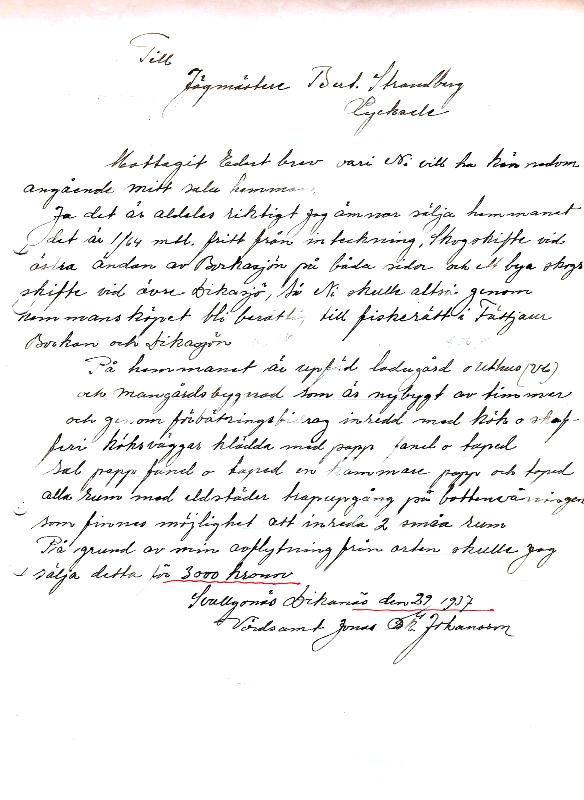 Till
Jägmästere Bert. Strandberg
Lycksele
Mottagit Edert brev vari Ni vill ha kännedom
angående mitt salu hemman.
Ja det är aldeles riktigt jag ämnar sälja hemmanet
det är 1/64 mtl. fritt från inteckning, Skogskifte vid
östra ändan av Borkasjön på båda sidor och ett bya skogs
skifte vid övre Dikasjö, Så Ni skulle altså genom
hemmansköpet bli berättig till fiskerätt i Fättjaur
Borkan och Dikasjön
På hemmanet är upförd ladugård o uthus
och mangårdsbygnad som är nybygt av timmer
och genom förbätringsbidrag inredd med kök o skaf-
feri köksväggar klädda med papp fanel o taped
sal papp fanel o taped en kammare papp och taped
alla rum med eldstäder trapupgång på bottenvåningen
som finnes möjlighet att inreda 2 små rum
På grund av min avflytning från orten skulle jag
sälja detta för 3000 kronor
Dikanäs den 29 1937
Vördsamt Jonas Johansson